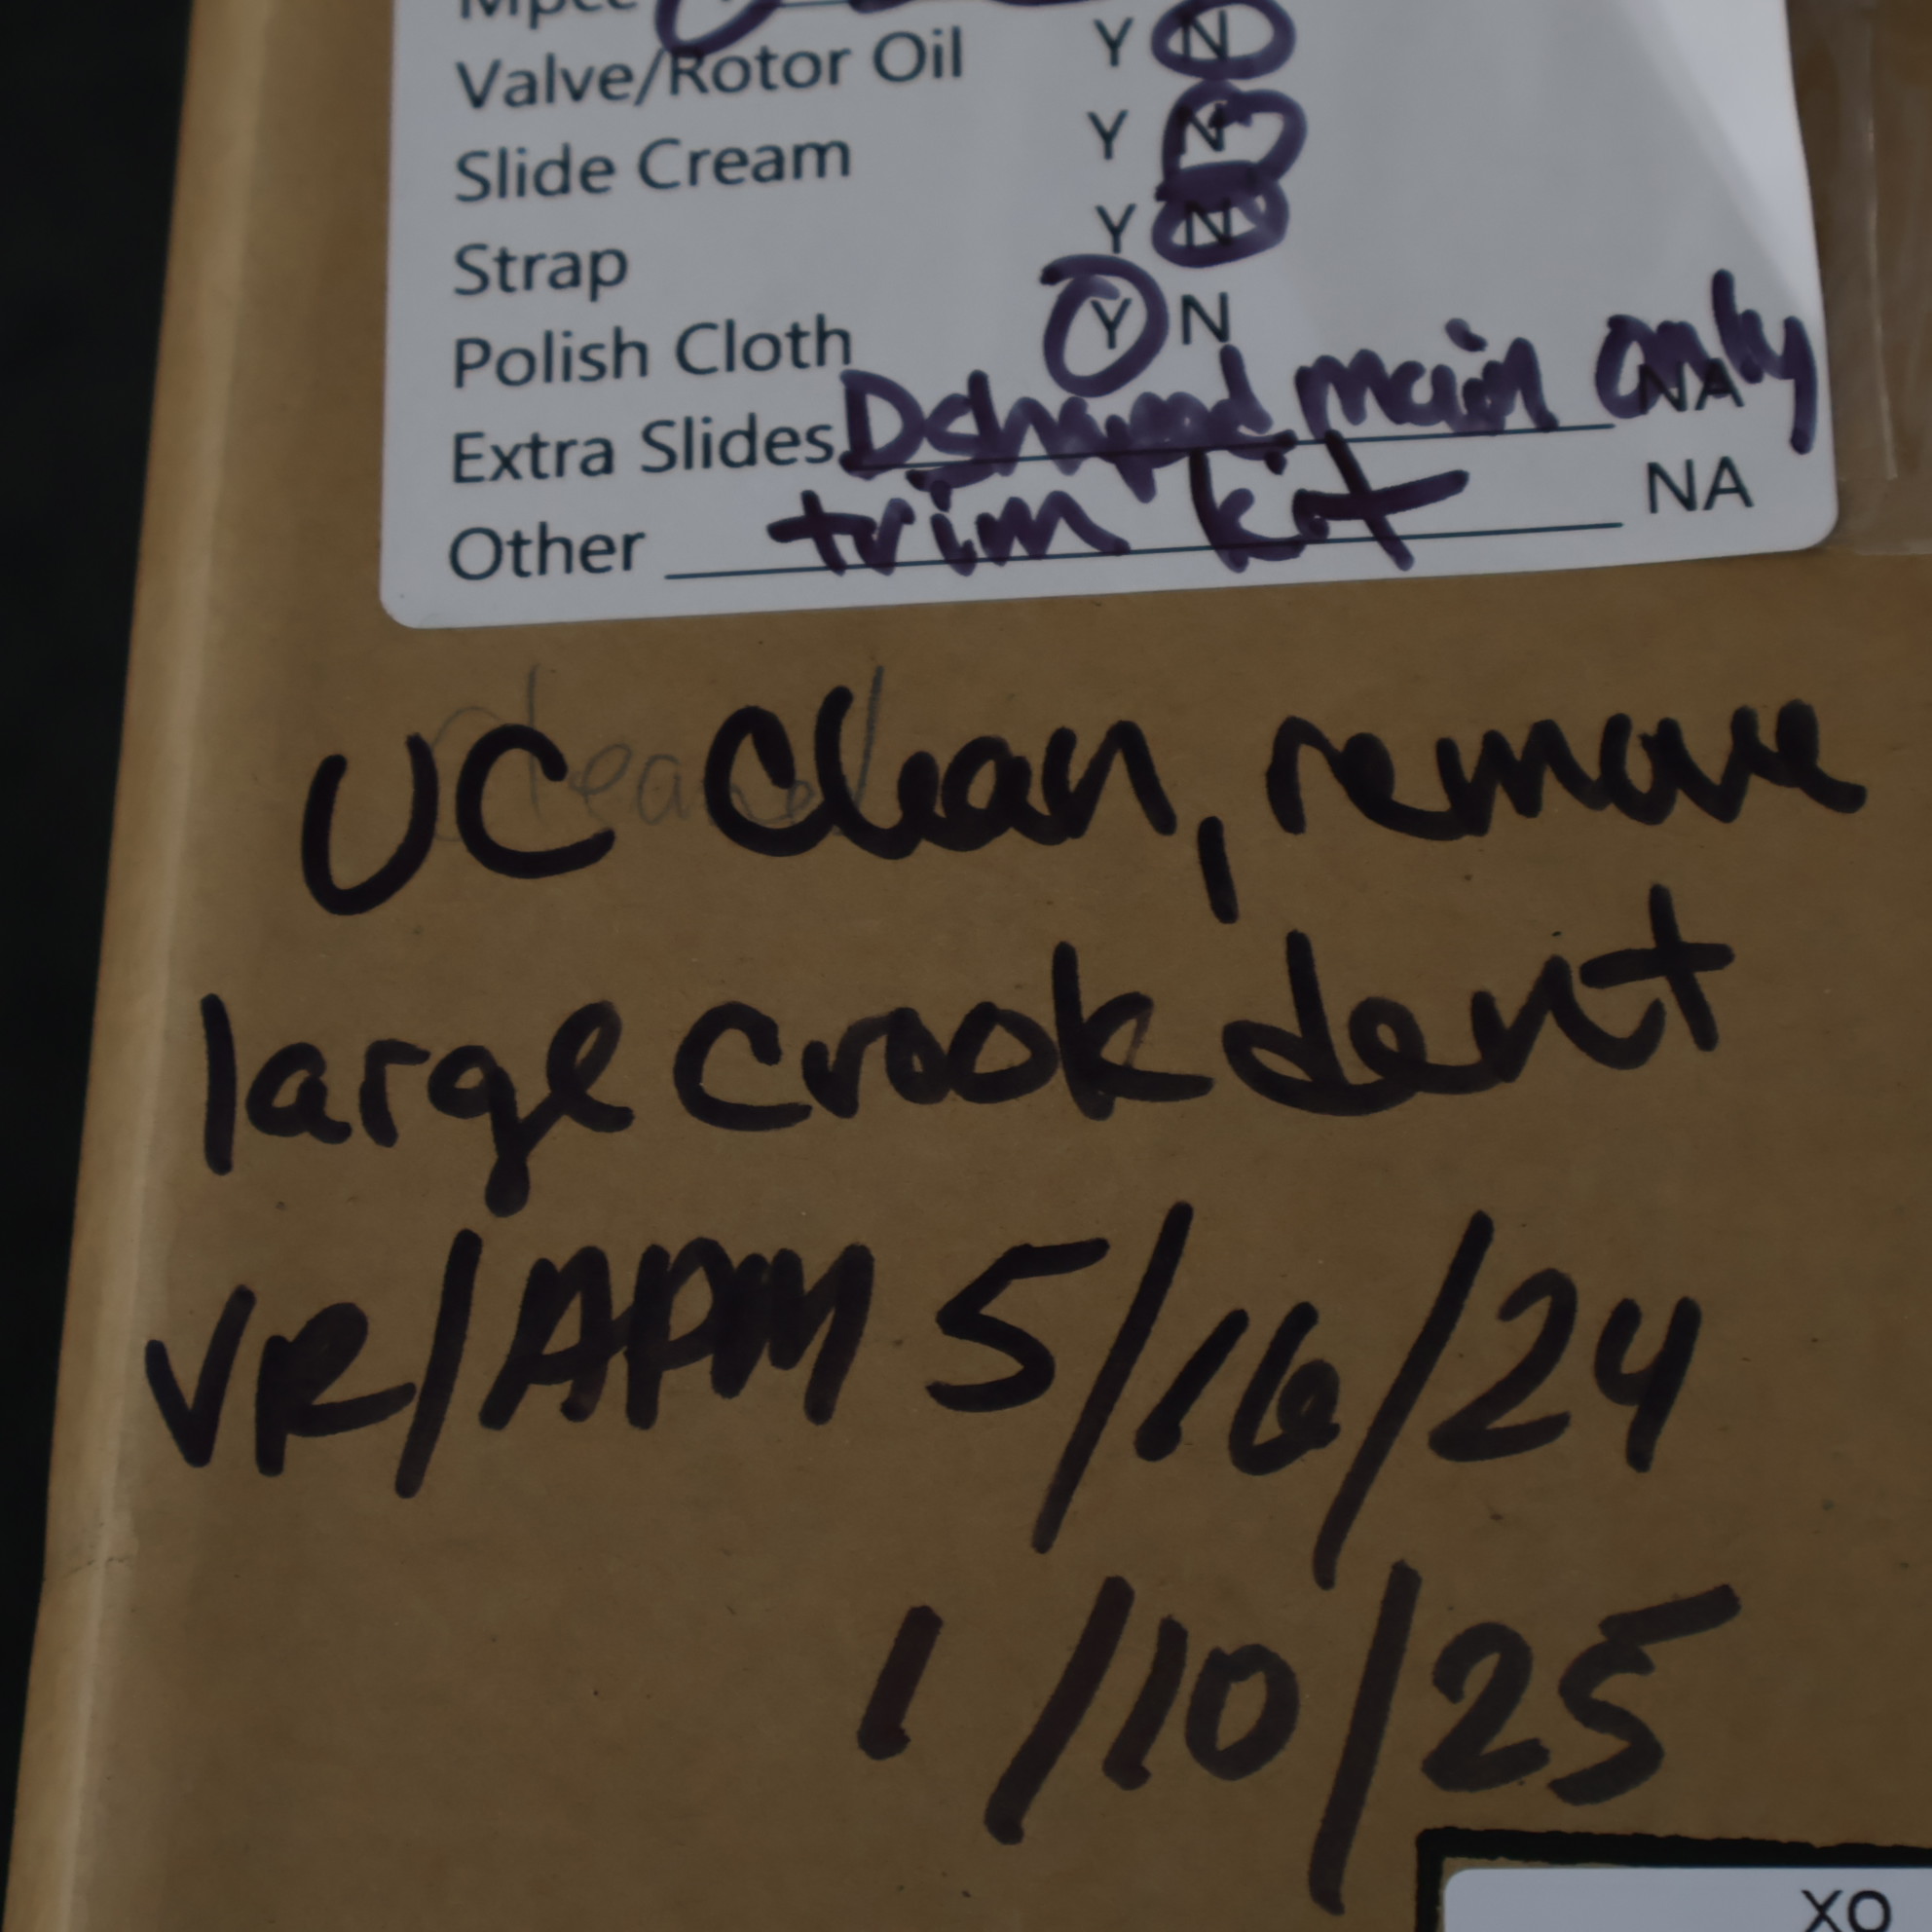 Mpce
Valve/Rotor Oil Y N
Slide Cream Y N
Strap Y N
Polish Cloth Y N
Extra Slides D shaped main only NA
Other trim kit NA
Cleaned
UC Clean, remove
large crook dent
VR/APM 5/16/24
1/10/25
XO